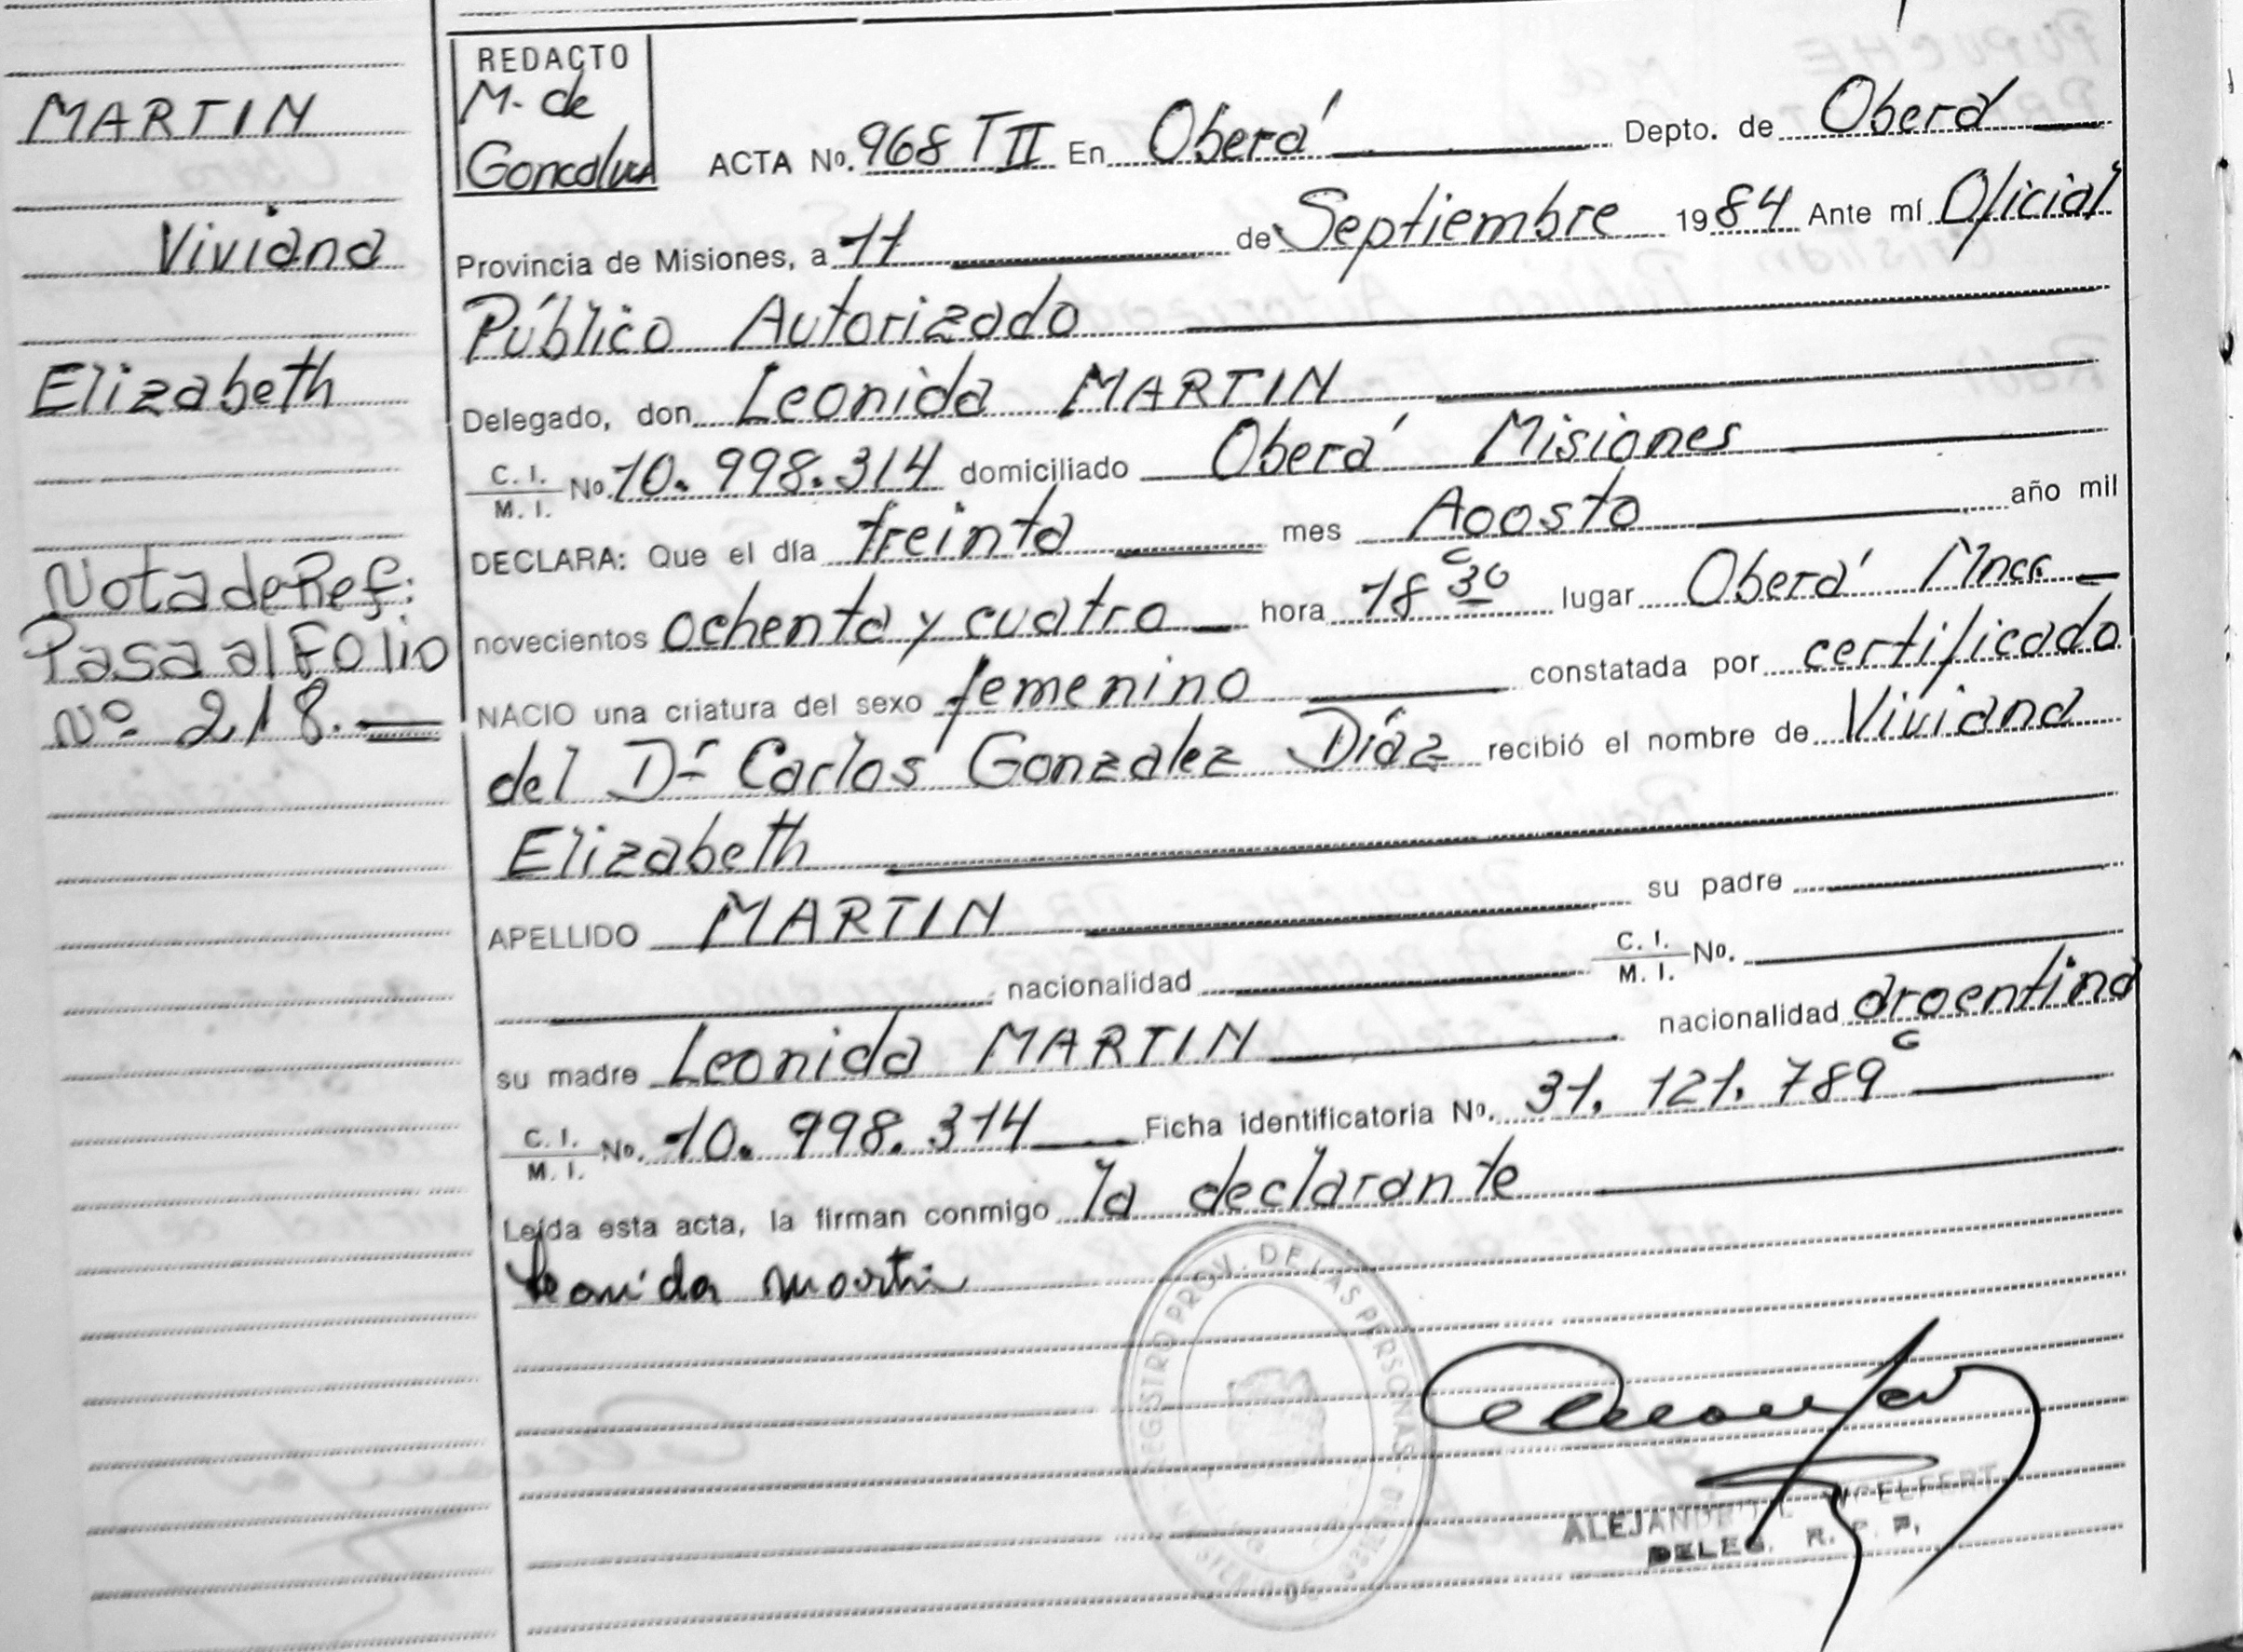 MARTIN
Viviana
Elizabeth
Nota de Ref:
Pasa al Folio
Nº 218.
REDACTO
M. de
ACTA Nº. 968 T II En Oberá Depto. de Oberá
Provincia de Misiones, a 11 de Septiembre 1984 Ante mí Oficial
Público Autorizado
Delegado, don Leonida MARTIN
C. I.
M. I. Nº 10.998.314 domiciliado Oberá Misiones
DECLARA: Que el día treinta mes Agosto año mil
novecientos ochenta y cuatro hora 18 30 lugar Oberá Mnes.
NACIO una criatura del sexo femenino constatada por certificado
del Dr Carlos Gonzalez Díaz recibió el nombre de Viviana
Elizabeth
APELLIDO MARTIN su padre
nacionalidad C. I.
M. I. Nº.
su madre Leonida MARTIN nacionalidad argentina
C. I.
M. I. Nº. 10.998.314 Ficha identificatoria Nº. 31.121.789
Leída esta acta, la firman conmigo la declarante
Leonida Martin
REGISTRO PROV. DE LAS PERSONAS
DELEG. R. P. P.